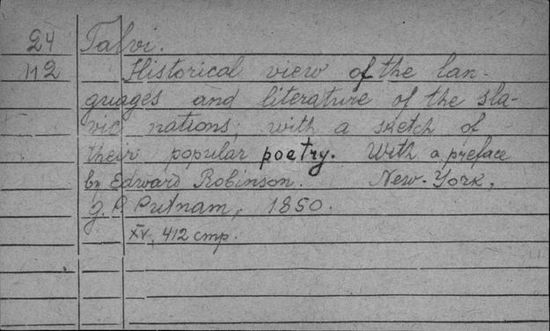 24 Talvi.
112 Historical view of the lan-
guages and literature of the sla-
vic nations; with a sketch of
their popular poetry. With a preface
by Edward Robinson. New-York,
G. P. Putnam, 1850.
XV, 412 cmp.